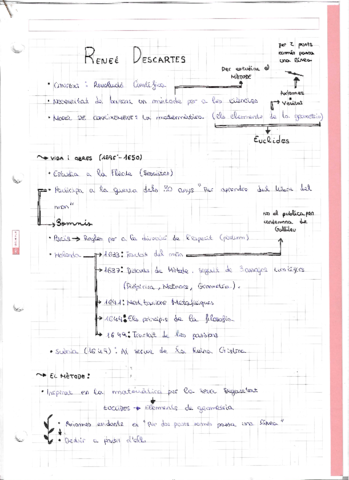 RENEÉ DESCARTES
per 2 punts
només passa
una línea
Per estudiar el
mètode
• Context: Revolució Científica
Axiomes
• Necessitat de buscar un mètode per a les ciències
Veritat
• Model de coneixement: la matemàtica (els elements de la geometria)
Euclides
→ VIDA I OBRES (1596-1650)
• Estudia a la Flèche (Jesuïtes)
• Participa a la guerra dels 30 anys "Per aprendre del llibre del
món"
→ Somnis
no el publica per
condemna de
Galileu
• París → Regles per a la direcció de l'esperit (pòstum)
• Holanda → 1633: Tractat del món
→ 1637: Discurs del Mètode, seguit de 3 assajos científics
(Diòptrica, Meteors, Geometria).
→ 1641: Meditacions Metafísiques
→ 1644: Els principis de la filosofia
→ 1649: Tractat de les passions
• Suècia (1649): Al servei de la Reina Cristina
→ EL MÈTODE:
• Inspirat en la matemàtica per la seva
EUCLIDES → elements de geometria
• Axiomes evidents ex "Per dos punts només passa una línea"
• Deduir a partir d'ells.